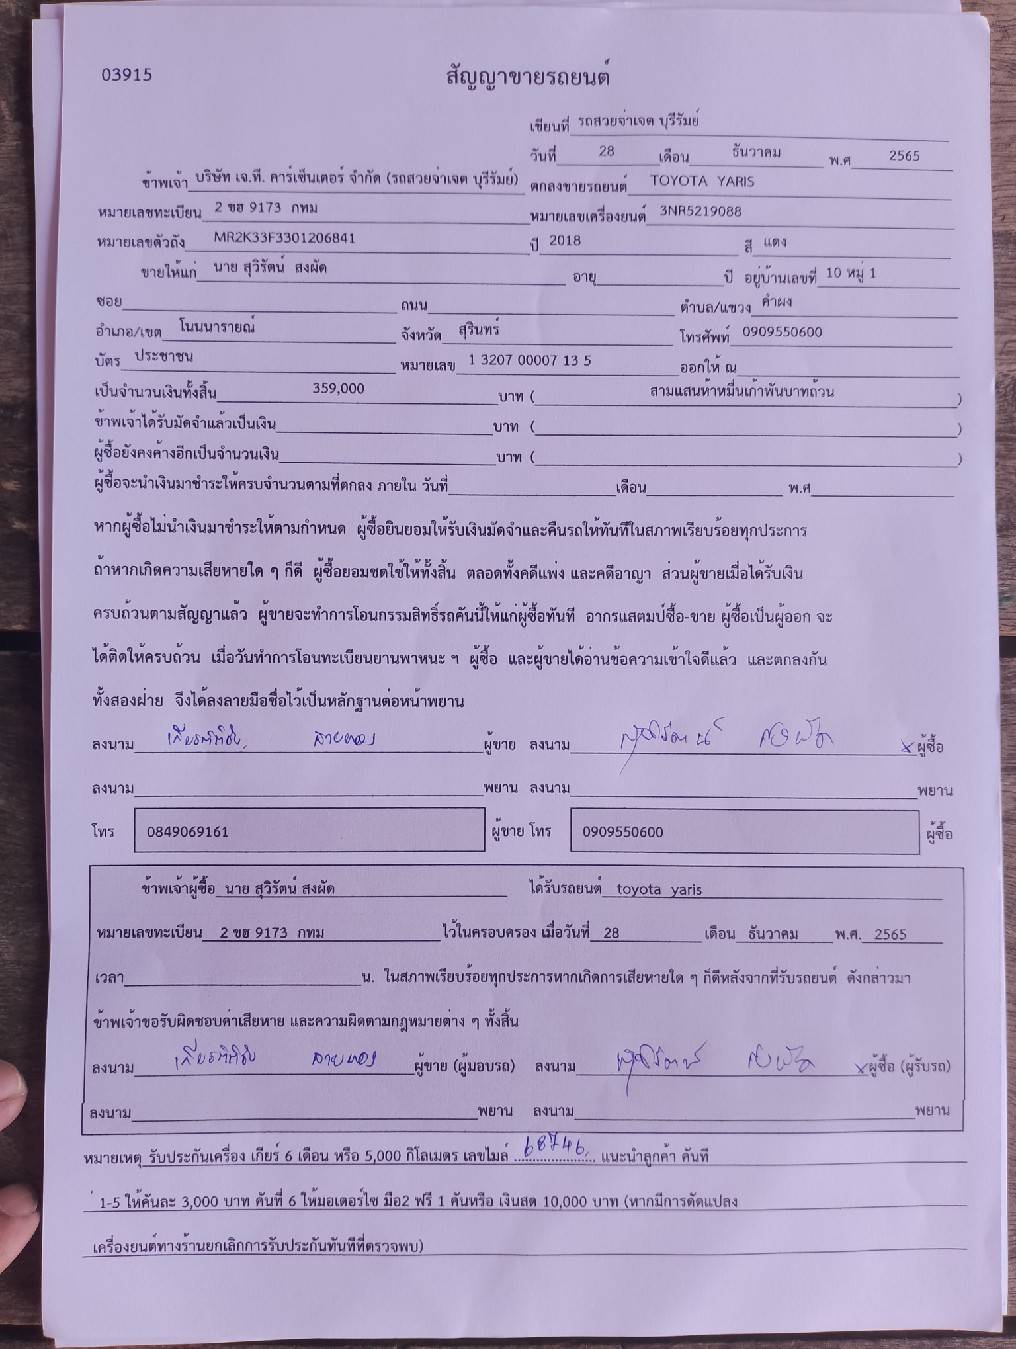 03915
สัญญาขายรถยนต์
เขียนที่ รถสวยจ่าเจต บุรีรัมย์
วันที่ 28 เดือน ธันวาคม พ.ศ 2565
ข้าพเจ้า บริษัท เจ.ที. คาร์เซ็นเตอร์ จำกัด (รถสวยจ่าเจต บุรีรัมย์) ตกลงขายรถยนต์ TOYOTA YARIS
หมายเลขทะเบียน 2 ขฮ 9173 กทม หมายเลขเครื่องยนต์ 3NR5219088
หมายเลขตัวถัง MR2K33F3301206841 ปี 2018 สี แดง
ขายให้แก่ นาย สุวิรัตน์ สงผัด อายุ ปี อยู่บ้านเลขที่ 10 หมู่ 1
ซอย ถนน ตำบล/แขวง คำผง
อำเภอ/เขต โนนนารายณ์ จังหวัด สุรินทร์ โทรศัพท์ 0909550600
บัตร ประชาชน หมายเลข 1 3207 00007 13 5 ออกให้ ณ
เป็นจำนวนเงินทั้งสิ้น 359,000 บาท ( สามแสนห้าหมื่นเก้าพันบาทถ้วน )
ข้าพเจ้าได้รับมัดจำแล้วเป็นเงิน บาท ( )
ผู้ซื้อยังคงค้างอีกเป็นจำนวนเงิน บาท ( )
ผู้ซื้อจะนำเงินมาชำระให้ครบจำนวนตามที่ตกลง ภายใน วันที่ เดือน พ.ศ
หากผู้ซื้อไม่นำเงินมาชำระให้ตามกำหนด ผู้ซื้อยินยอมให้รับเงินมัดจำและคืนรถให้ทันทีในสภาพเรียบร้อยทุกประการ
ถ้าหากเกิดความเสียหายใด ๆ ก็ดี ผู้ซื้อยอมชดใช้ให้ทั้งสิ้น ตลอดทั้งคดีแพ่ง และคดีอาญา ส่วนผู้ขายเมื่อได้รับเงิน
ครบถ้วนตามสัญญาแล้ว ผู้ขายจะทำการโอนกรรมสิทธิ์รถคันนี้ให้แก่ผู้ซื้อทันที อากรแสตมป์ซื้อ-ขาย ผู้ซื้อเป็นผู้ออก จะ
ได้ติดให้ครบถ้วน เมื่อวันทำการโอนทะเบียนยานพาหนะ ฯ ผู้ซื้อ และผู้ขายได้อ่านข้อความเข้าใจดีแล้ว และตกลงกัน
ทั้งสองฝ่าย จึงได้ลงลายมือชื่อไว้เป็นหลักฐานต่อหน้าพยาน
ลงนาม ผู้ขาย ลงนาม สุวิรัตน์ สงผัด × ผู้ซื้อ
ลงนาม พยาน ลงนาม พยาน
โทร 0849069161 ผู้ขาย โทร 0909550600 ผู้ซื้อ
ข้าพเจ้าผู้ซื้อ นาย สุวิรัตน์ สงผัด ได้รับรถยนต์ toyota yaris
หมายเลขทะเบียน 2 ขฮ 9173 กทม ไว้ในครอบครอง เมื่อวันที่ 28 เดือน ธันวาคม พ.ศ. 2565
เวลา น. ในสภาพเรียบร้อยทุกประการหากเกิดการเสียหายใด ๆ ก็ดีหลังจากที่รับรถยนต์ ดังกล่าวมา
ข้าพเจ้าขอรับผิดชอบค่าเสียหาย และความผิดตามกฎหมายต่าง ๆ ทั้งสิ้น
ลงนาม ผู้ขาย (ผู้มอบรถ) ลงนาม สุวิรัตน์ สงผัด × ผู้ซื้อ (ผู้รับรถ)
ลงนาม พยาน ลงนาม พยาน
หมายเหตุ รับประกันเครื่อง เกียร์ 6 เดือน หรือ 5,000 กิโลเมตร เลขไมล์ 68746 แนะนำลูกค้า คันที่
1-5 ให้คันละ 3,000 บาท คันที่ 6 ให้มอเตอร์ไซ มือ2 ฟรี 1 คันหรือ เงินสด 10,000 บาท (หากมีการดัดแปลง
เครื่องยนต์ทางร้านยกเลิกการรับประกันทันทีที่ตรวจพบ)